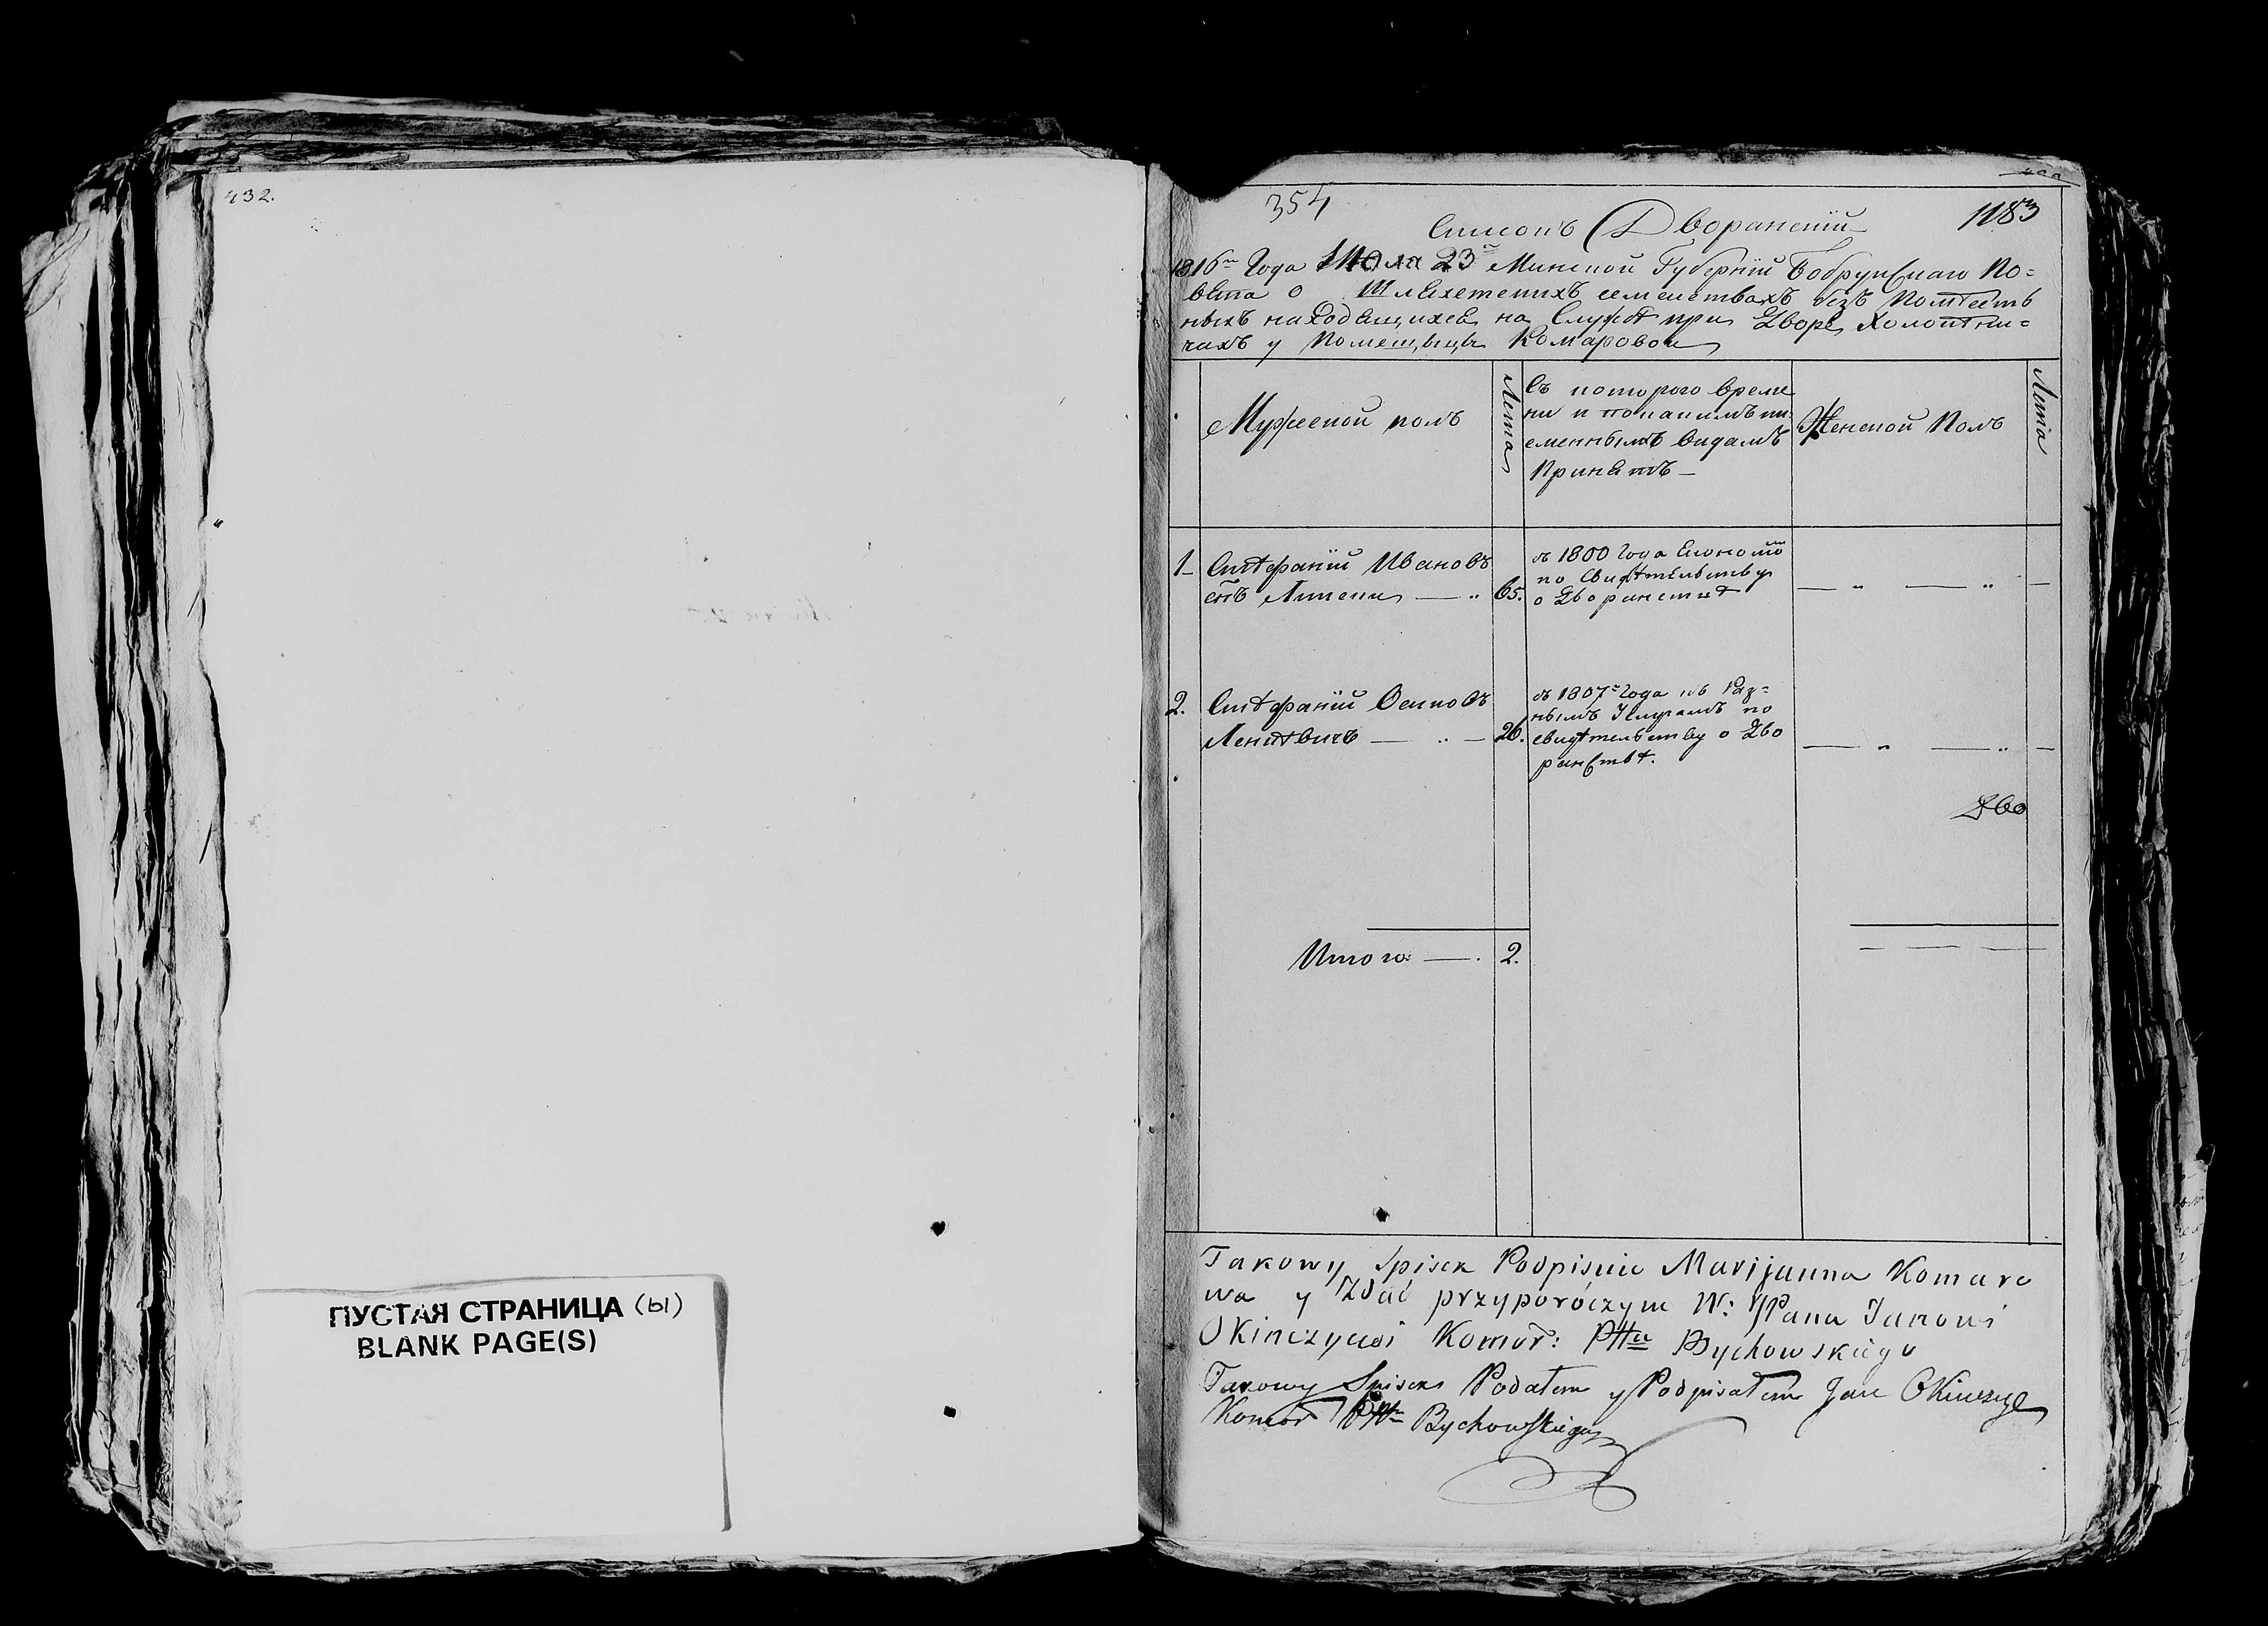 432.
ПУСТАЯ СТРАНИЦА (Ы)
BLANK PAGE(S)
354
1183
Списокъ Дворанский
1816го Года Июля 23го Минской Губернїи Бобруйскаго По=
вета о Шлѧхетскихъ семействахъ безъ Помѣсть
ныхъ находѧщихсѧ на Службѣ при Дворѣ Холопѣни=
чахъ у Помещыцы Комаровой
Мужеской полъ
Лета
Съ которого време
ни и по какимъ пи
сменнымъ видамъ
Принѧтъ —
Женской Полъ
Лета
1 Стефанїй Ивановъ
сынъ — " 65.
съ 1800 Года
по свидѣтельству
о Дворанстве
— " — " —
2. Стефанїй Осиповъ
Ленкѣвичъ — " — 26.
съ 1807го Года къ Раз=
нымъ по
свидѣтельству о Дво
ранствѣ.
— " — " —
Дво
Итого: — . 2.
— — —
Takowy Spisek Podpisuie Marijanna Komaro
wa y Zdać przyporóczym W: JPanu Janowi
Okinczycowi Komor: Pttu Bychowskiego
Takowy Spisek Podałem y Podpisałem Jan Okinczyc
Komor Pttu Bychowskiego